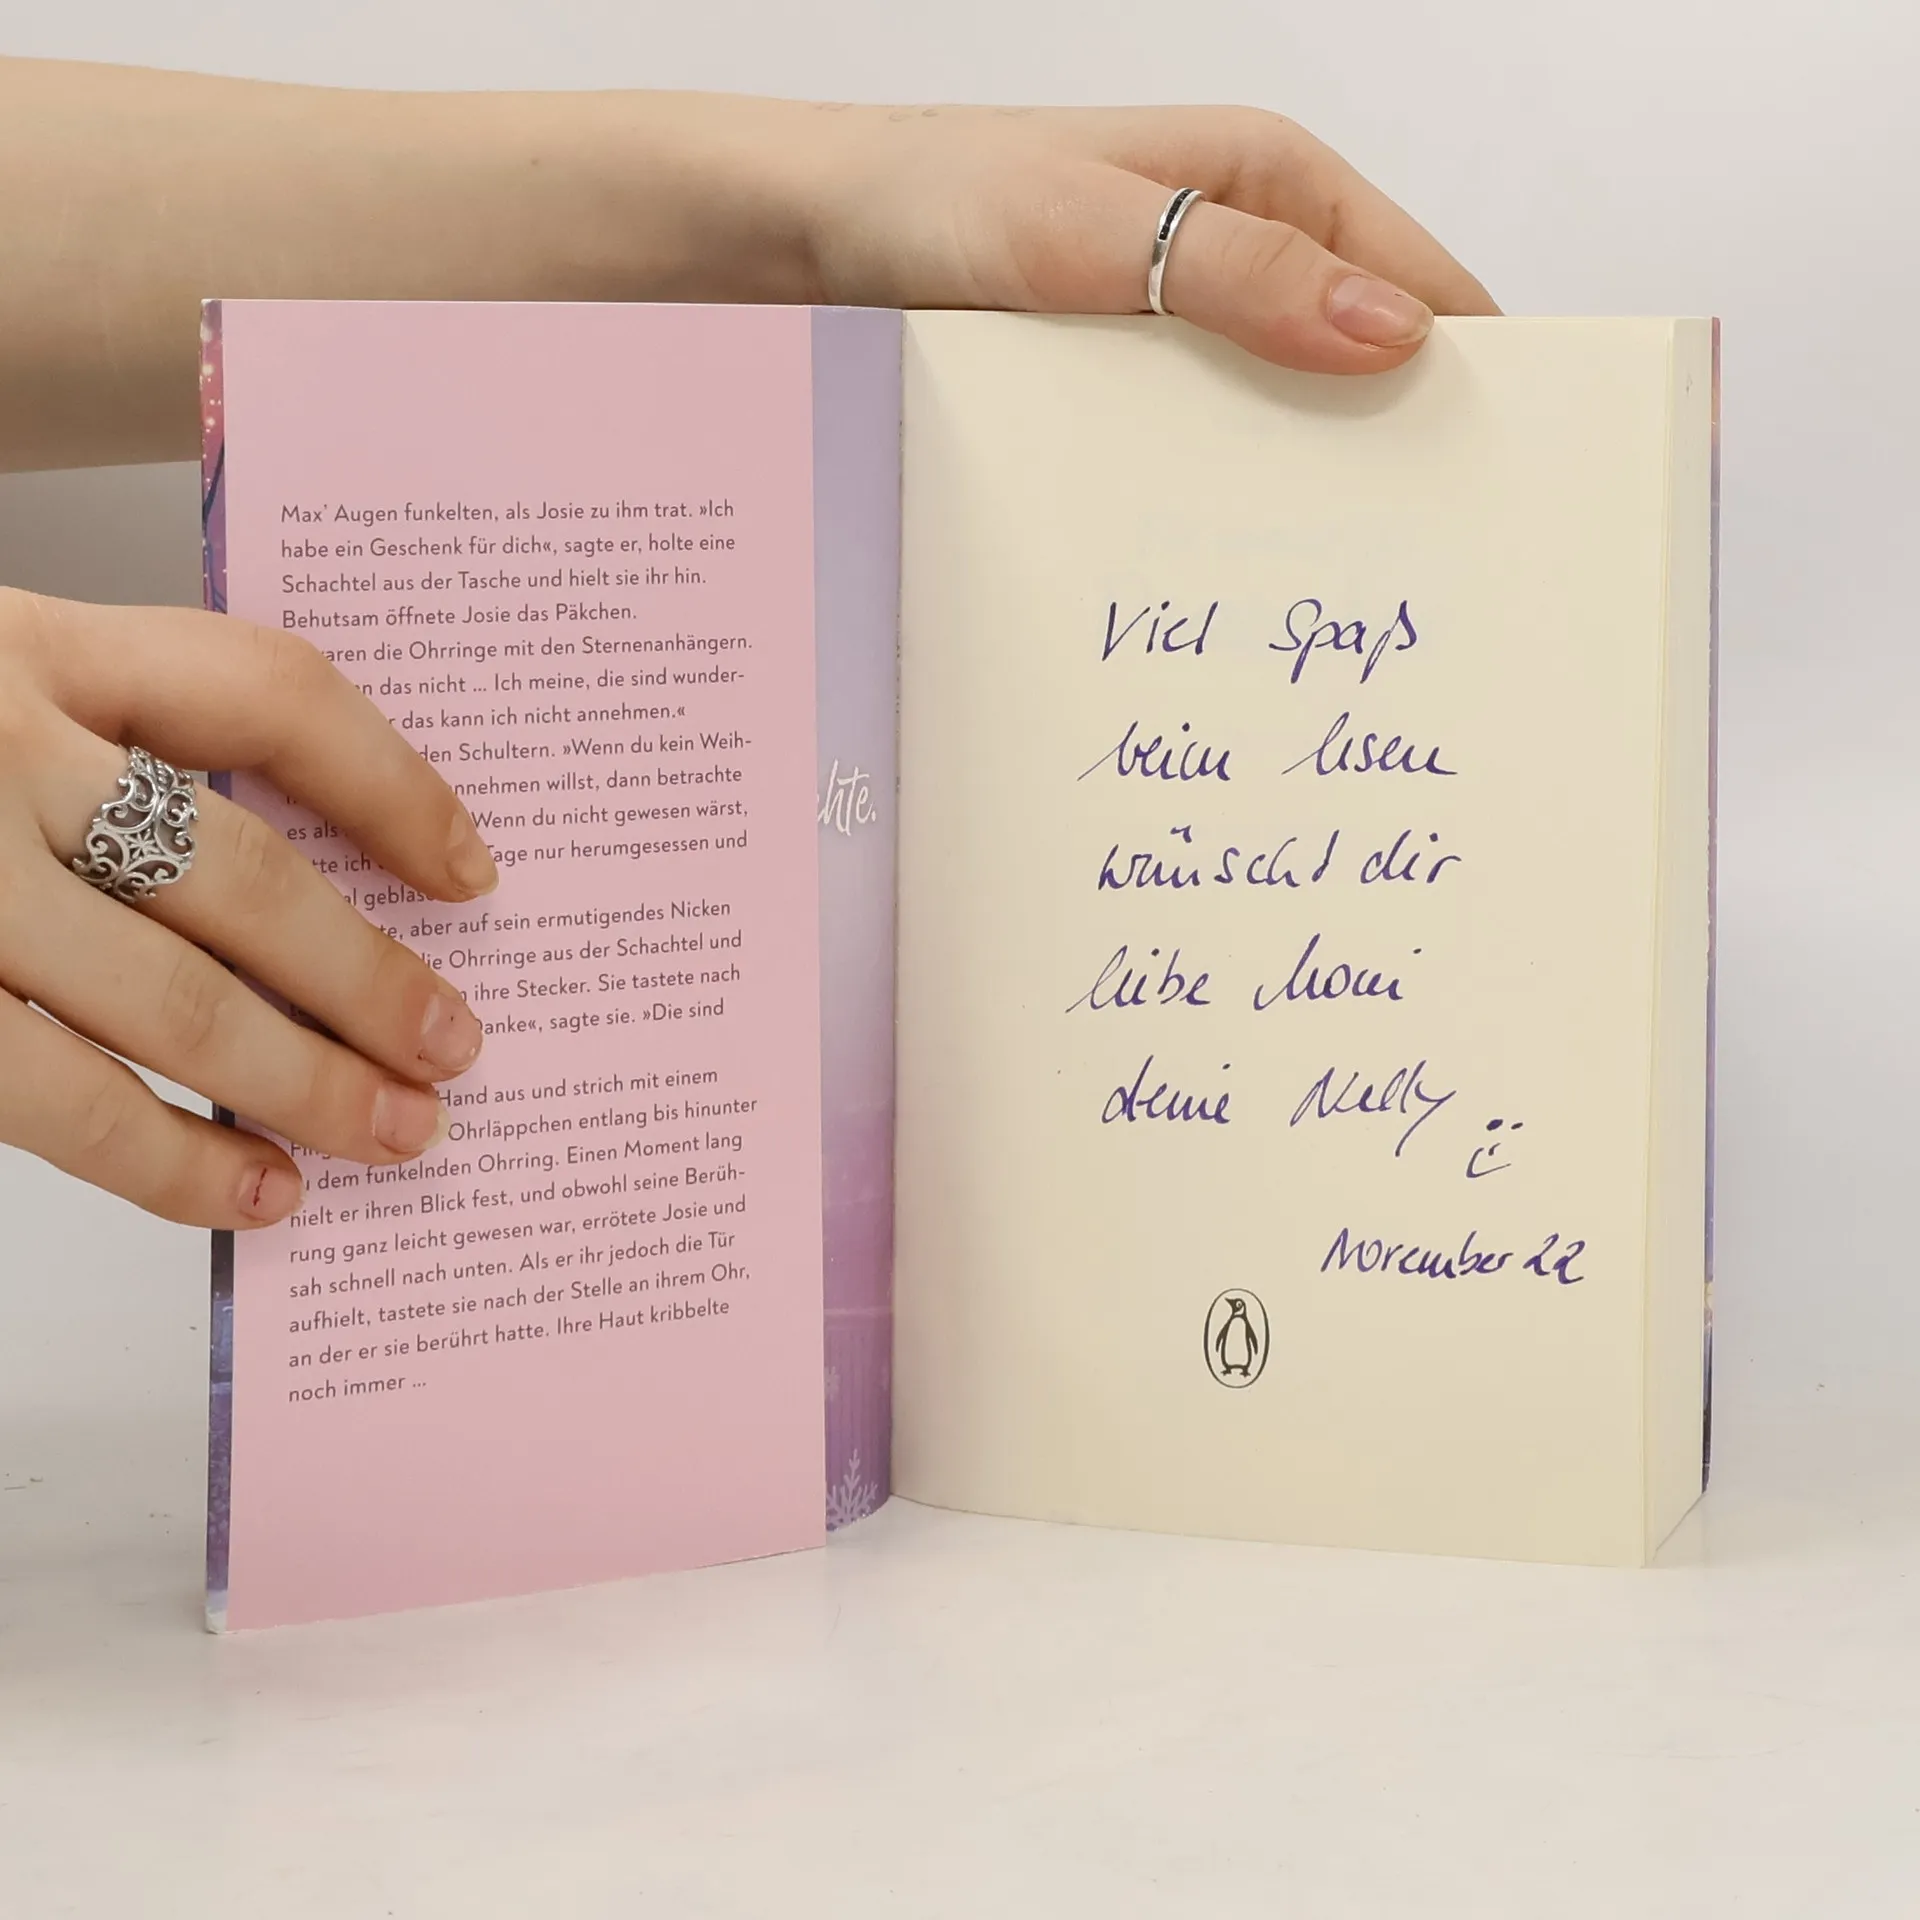 Max' Augen funkelten, als Josie zu ihm trat. »Ich
habe ein Geschenk für dich«, sagte er, holte eine
Schachtel aus der Tasche und hielt sie ihr hin.
Behutsam öffnete Josie das Päkchen.
die Ohrringe mit den Sternenanhängern.
das nicht ... Ich meine, die sind wunder-
das kann ich nicht annehmen.«
den Schultern. »Wenn du kein Weih-
nnehmen willst, dann betrachte
es als Wenn du nicht gewesen wärst,
tte ich Tage nur herumgesessen und
al geblas
te, aber auf sein ermutigendes Nicken
die Ohrringe aus der Schachtel und
ihre Stecker. Sie tastete nach
Danke«, sagte sie. »Die sind
Hand aus und strich mit einem
Fing Ohrläppchen entlang bis hinunter
dem funkelnden Ohrring. Einen Moment lang
hielt er ihren Blick fest, und obwohl seine Berüh-
rung ganz leicht gewesen war, errötete Josie und
sah schnell nach unten. Als er ihr jedoch die Tür
aufhielt, tastete sie nach der Stelle an ihrem Ohr,
an der er sie berührt hatte. Ihre Haut kribbelte
noch immer ...
hte.
Viel Spaß
beim lesen
wünscht dir
liebe Moni
deine Nelly
November 22